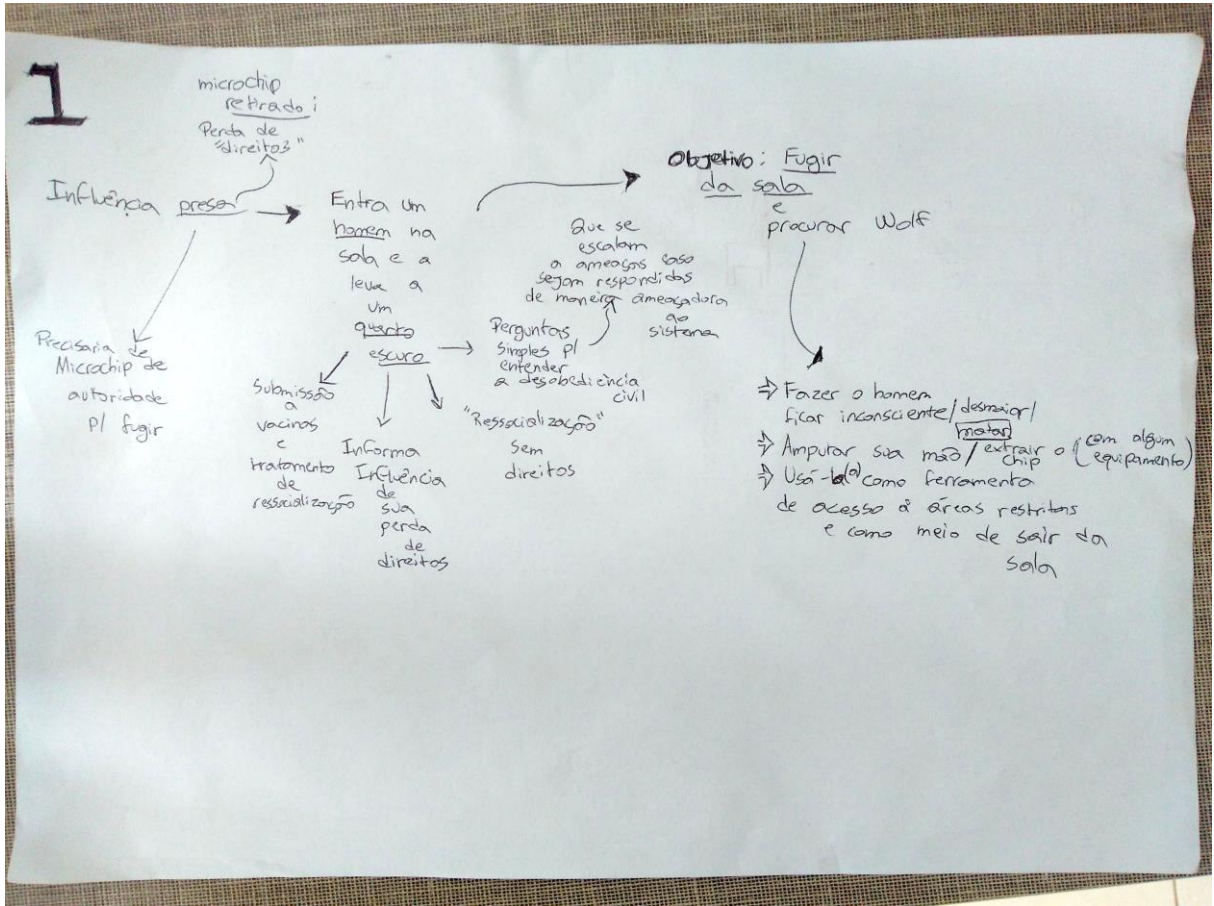 1
microchip
retirado:
Perda de
"direitos"
Influência presa
Precisaria de
Microchip de
autoridade
p/ fugir
Entra um
homem na
sala e a
leva a
um
quarto
escuro
Submissão
a
vacinas
e
tratamento
de
ressocialização
Informa
Influência
de
sua
perda
de
direitos
"Ressocialização"
sem
direitos
Perguntas
simples p/
entender
a desobediência
civil
Que se
escalam
a ameaças caso
sejam respondidas
de maneira ameaçadora
ao
sistema
Objetivo: Fugir
da sala
e
procurar Wolf
⇒ Fazer o homem
ficar inconsciente/desmaiar/
matar
⇒ Amputar sua mão/extrair o chip (com algum equipamento)
⇒ Usá-la(o) como ferramenta
de acesso à áreas restritas
e como meio de sair da
sala